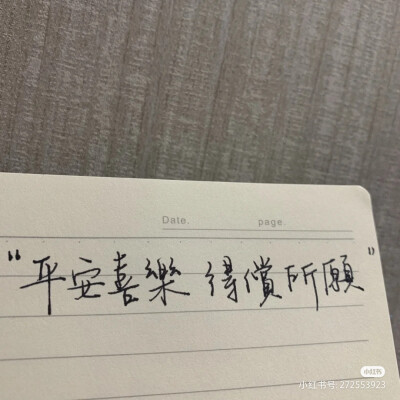 Date. page.
“平安喜樂 得償所願”
小红书
小红书号: 272553923